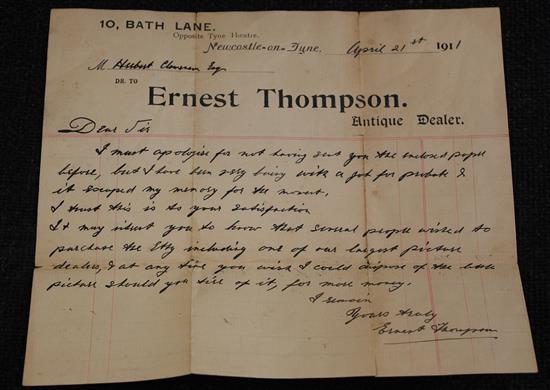 10, BATH LANE.
Opposite Tyne Theatre.
Newcastle-on-Tyne, April 21st 1911
M Hubert Esq
DR. TO
ERNEST THOMPSON.
Antique Dealer.
Dear Sir
I must apologise for not having sent you the enclosed paper
before, but I have been very busy with a job for probate &
it escaped my memory for the moment.
I trust this is to your satisfaction
It may interest you to know that several people wished to
purchase the Etty including one of our largest picture
dealers, & at any time you wish I could dispose of the little
picture should you tire of it, for more money.
I remain
Yours truly
Ernest Thompson